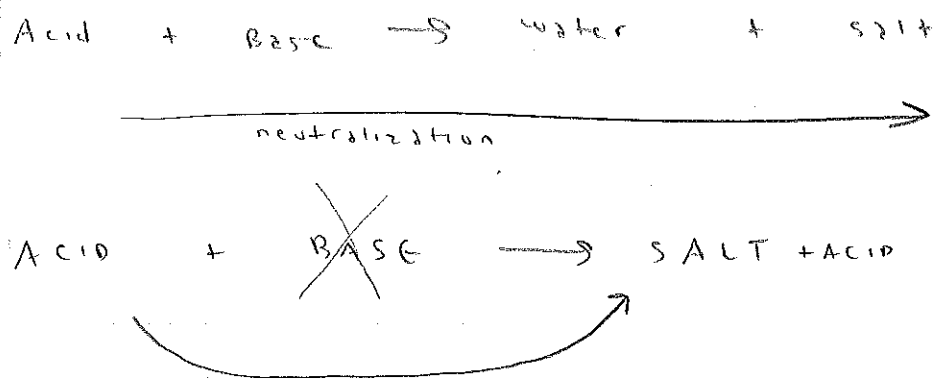 Acid + Base → water + salt
neutralization
ACID + BASE → SALT + ACID